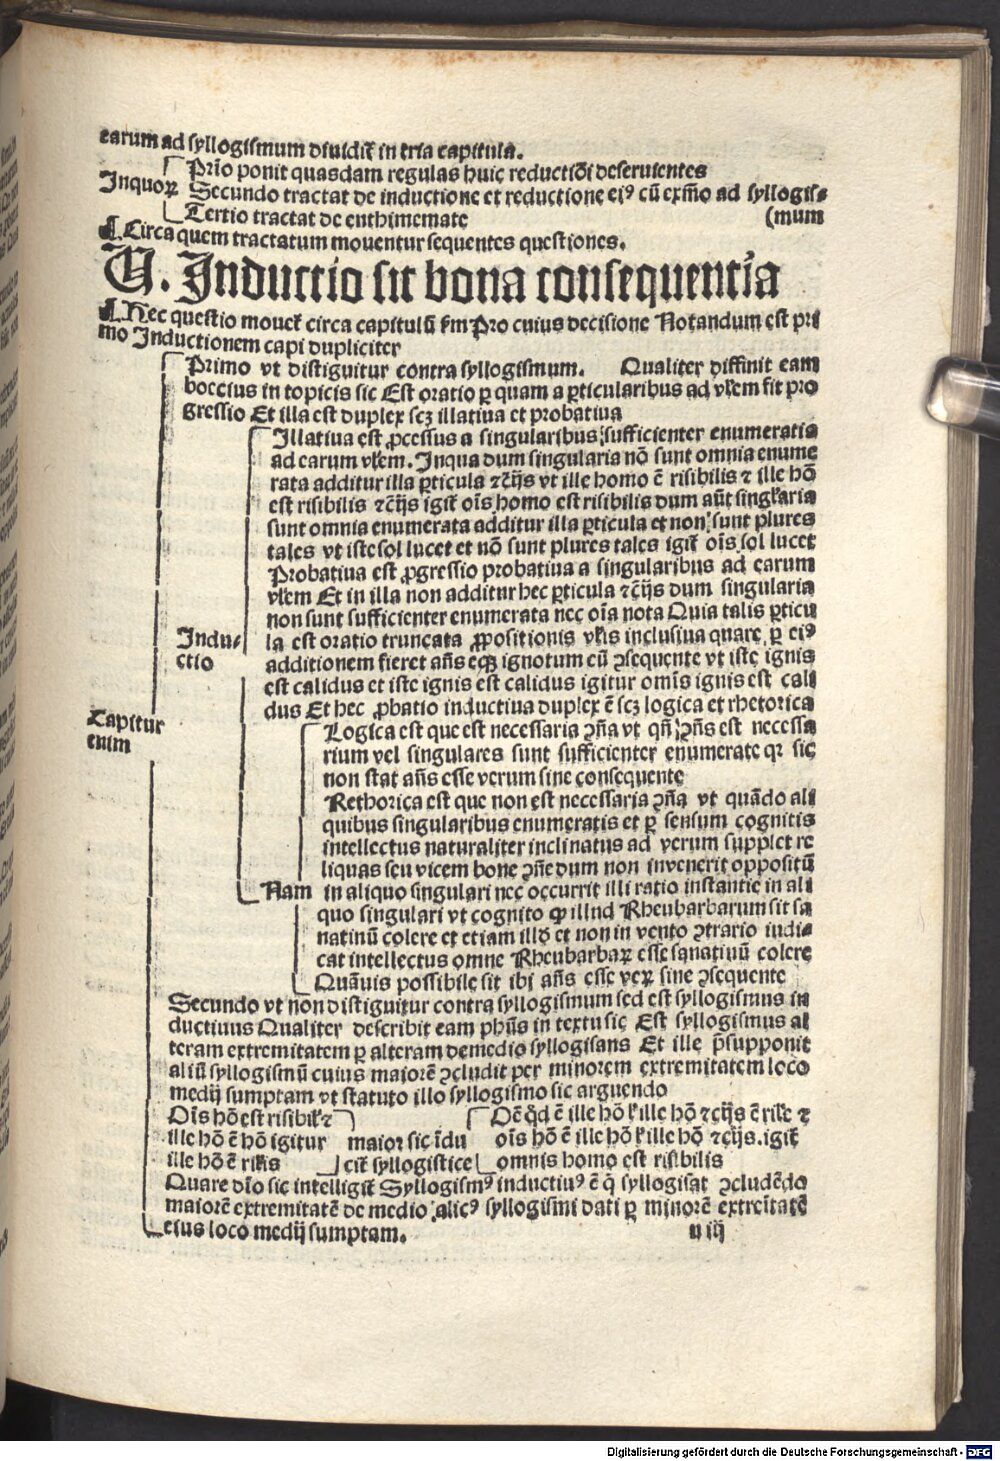 earum ad syllogismum diuidit̃ in tria capitula.
Prīo ponit quasdam regulas huic reductiōi deseruientes
Inquoꝝ Secundo tractat de inductione et reductione eiꝰ cū exm̄o ad syllogis⸗
Tertio tractat de enthimemate (mum
¶ Circa quem tractatum mouentur sequentes questiones.
U. Inductio sit bona consequentīa
¶ Hec questio mouet̃ circa capitulū ẜm Pro cuius decisione Notandum est pri
mo Inductionem capi dupliciter
Primo vt distīguitur contra syllogismum. Qualiter diffinit eam
boecius in topicis sic Est oratio ꝑ quam a ꝑticularibus ad vl̄em fit pro
gressio Et illa est duplex scꝫ illatiua et probatiua
Illatiua est ꝓcessus a singularibus sufficienter enumeratis
ad earum vl̄em. Inqua dum singularia nō sunt omnia enume
rata additur illa ꝑticula ⁊c̄ijs vt ille homo ē risibilis ⁊ ille hō
est risibilis ⁊c̄ijs igit̃ oīs homo est risibilis dum aūt singl̄aria
sunt omnia enumerata additur illa ꝑticula et non sunt plures
tales vt iste sol lucet et nō sunt plures tales igit̃ oīs sol lucet
Probatiua est ꝓgressio probatiua a singularibus ad earum
vl̄em Et in illa non additur hec ꝑticula ⁊c̄ijs dum singularia
non sunt sufficienter enumerata nec oīa nota Quia talis ꝑticu
Indu⸗ la est oratio truncata ꝓpositionis vl̄is inclusiua quare ꝑ eiꝰ
ctio additionem fieret añs eq̃ꝫ ignotum cū ꝯsequente vt iste ignis
est calidus et iste ignis est calidus igitur omīs ignis est cali
dus Et hec ꝓbatio inductiua duplex ē scꝫ logica et rhetorica
Capitur
enim
Logica est que est necessaria ꝯña vt qñ ꝯñs est necessa
rium vel singulares sunt sufficienter enumerate qꝛ sic
non stat añs esse verum sine consequente
Rethorica est que non est necessaria ꝯña vt quādo ali
quibus singularibus enumeratis et ꝑ sensum cognitis
intellectus naturaliter inclinatus ad verum supplet re
liquas seu vicem bone ꝯñe dum non inuenerit oppositū
Nam in aliquo singulari nec occurrit illi ratio instantie in ali
quo singulari vt cognito ꝙ illnd Rheubarbarum sit sa
natinū colere et etiam illḋ et non in vento ꝯtrario iudi⸗
cat intellectus omne Rheubarbaꝝ esse sanatiuū colere
Quāuis possibile sit ibi añs esse veꝝ sine ꝯsequente
Secundo vt non distīguitur contra syllogismum sed est syllogismus in
ductiuus Qualiter describit eam phūs in textu sic Est syllogismus al
teram extremitatem ꝑ alteram de medio syllogisans Et ille p̄supponit
aliū syllogismū cuius maiorē ꝯcludit per minorem extremitatem loco
medij sumptam vt statuto illo syllogismo sic arguendo
Oīs hō est risibil̄ ⁊
ille hō ē hō igitur
ille hō ē ril̄is
maior sic īdu
cit̃ syllogistice
Oē q̇d ē ille hō ł ille hō ⁊c̄ijs ē ril̄e ⁊
oīs hō ē ille hō ł ille hō ⁊c̄ijs. igit̃
omnis homo est risibilis
Quare dīo sic intelligit̃ Syllogismꝰ inductiuꝰ ē q̇ syllogisat ꝯcludēdo
maiorē extremitatē de medio alicꝰ syllogismi dati ꝑ minorē extreītatē
eius loco medij sumptam. u iij
Digitalisierung gefördert durch die Deutsche Forschungsgemeinschaft - DFG